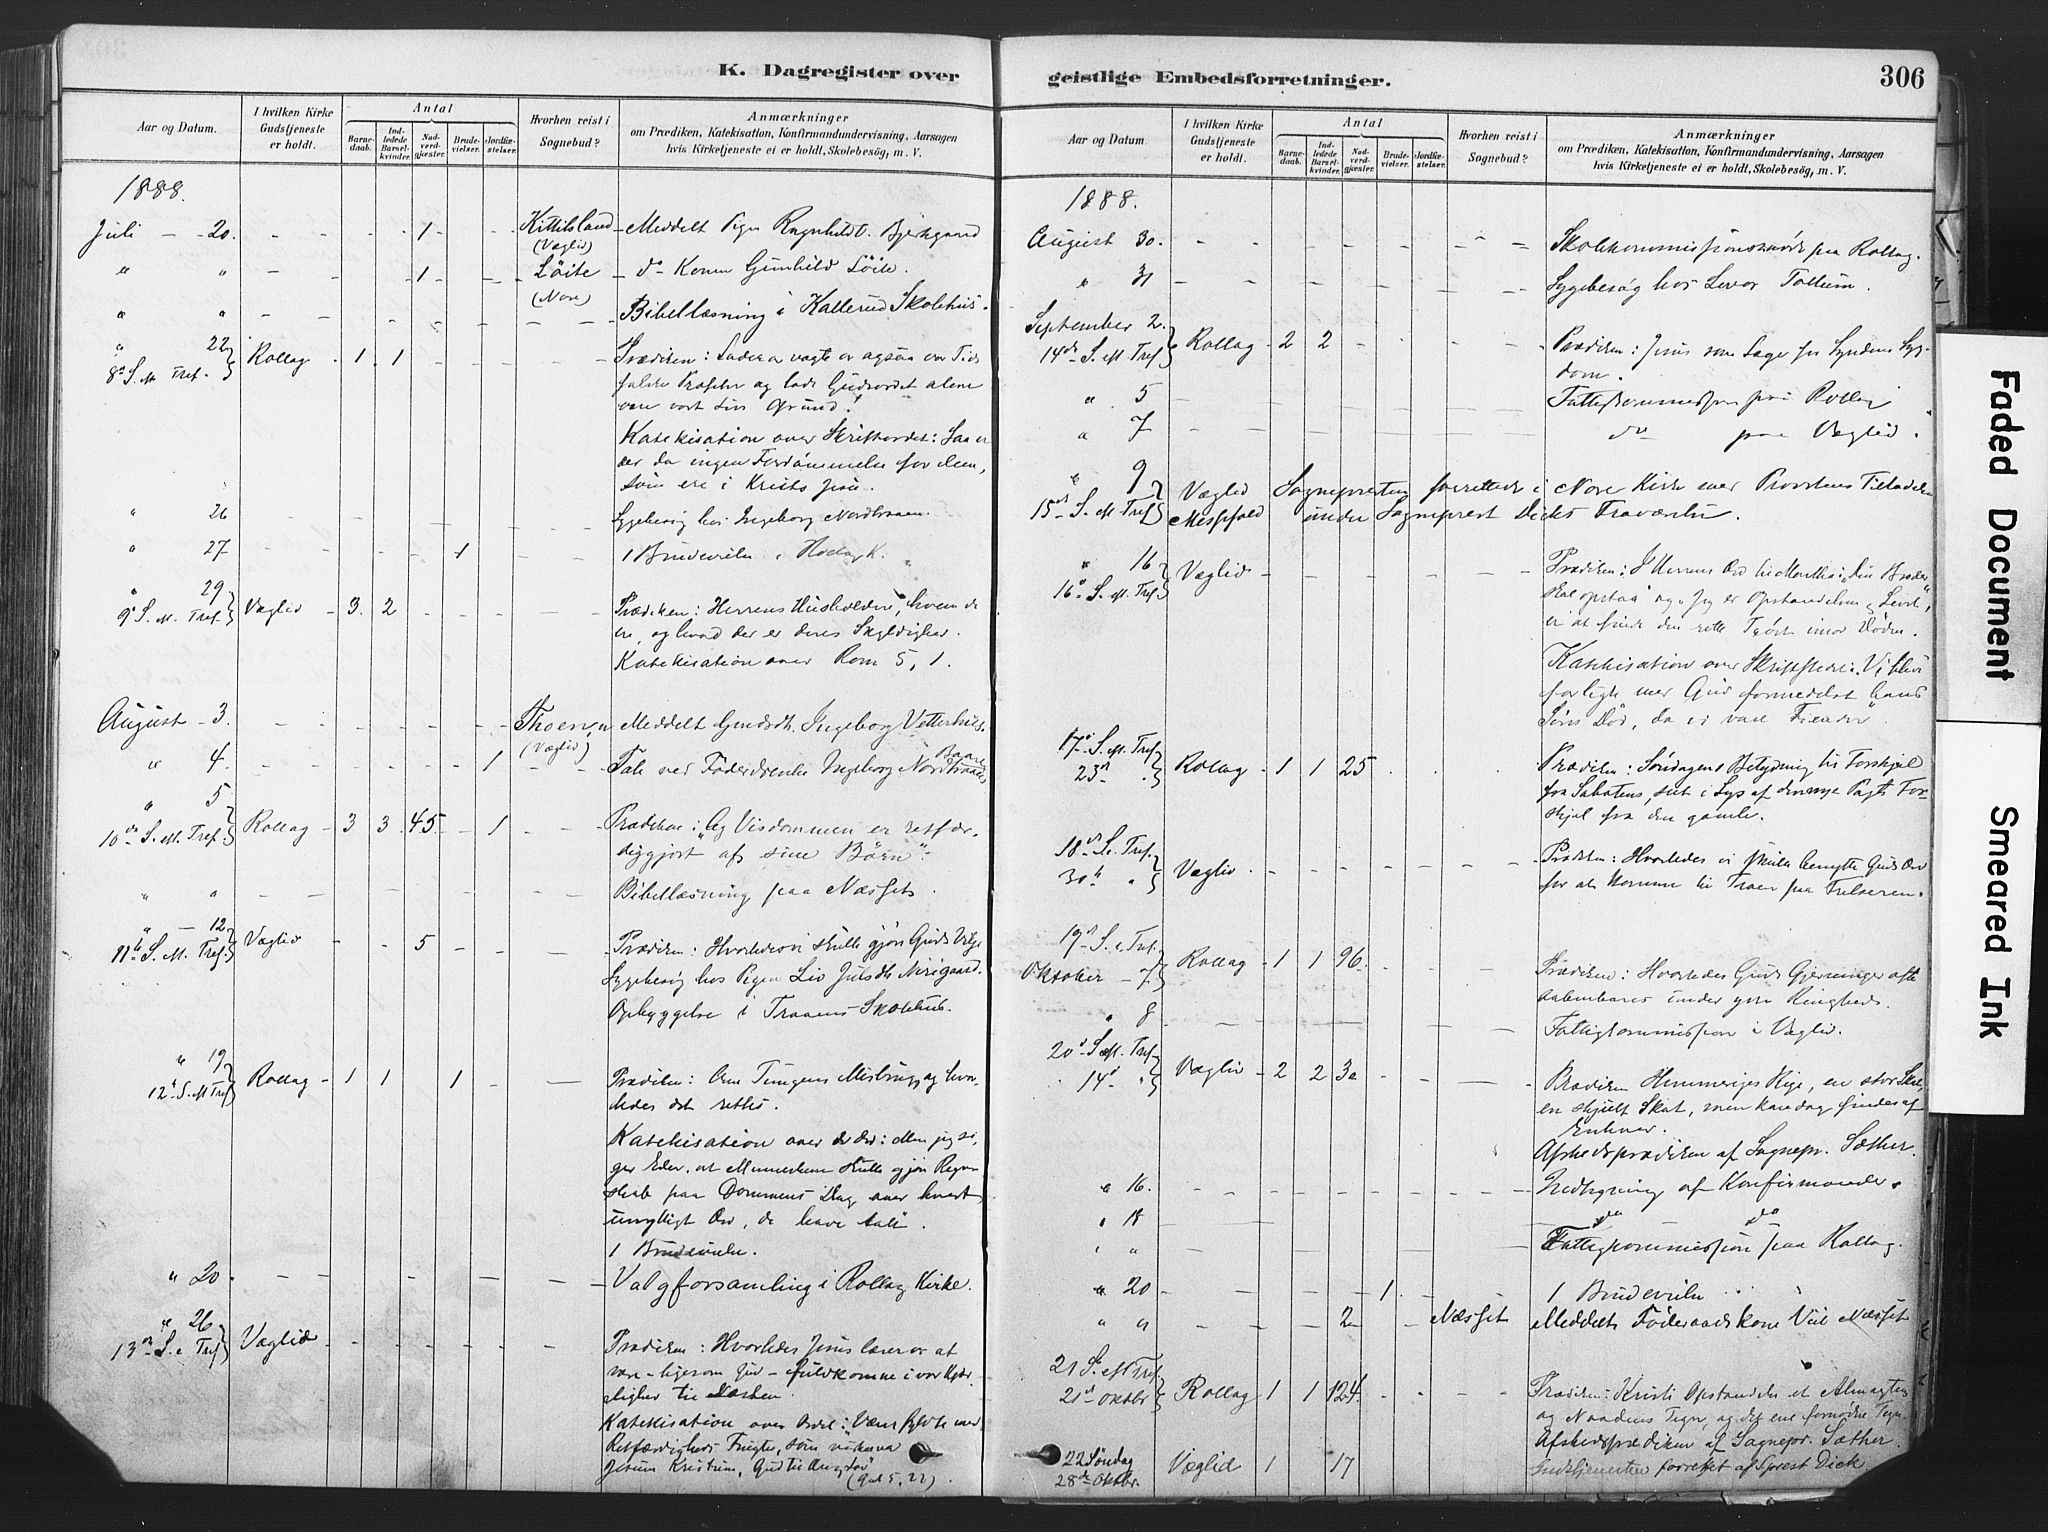 K. Dagregister over
Aar og Datum.
I hvilken Kirke Gudstjeneste er holdt.
Antal
Barnedaab.
Indledede Barselkvinder.
Nadverdgjester.
Brudevielser.
Jordfæstelser.
Hvorhen reist i Sognebud?
Anmærkninger
om Prædiken, Katekisation, Konfirmandundervisning, Aarsagen
hvis Kirketjeneste ei er holdt, Skolebesøg, m. V.
1888.
Juli — 20. 1 Kittilsland (Væglid) Meddelt Pigen Ragnhild T. Bjerkgaard
" " 1 Löite (Nore) do Konen Gunhild Löite.
" " Bibellæsning i Kallerud Skolehus.
" 22 8de S. M. Tref. Rollag 1 1 Prædiken: Lader os vogte os ogsaa vor Tids
falske Profeter og lade Gudsordet alene
være vort Livs Grund!
Katekisation over Skriftordet: Saa er
der da ingen Fordömmelse for dem,
som ere i Kristo Jesu.
" 26 Sygebesög hos Ingeborg Nordbraaen.
" 27 1 1 Brudevielse i Rollag K.
" 29 9de S. M. Tref. Væglid 3. 2 Prædiken: Herrens Husholdere, hvem de
ere, og hvad der er deres Skyldighed.
Katekisation over Rom 5, 1.
August — 3. (Væglid) Meddelt Ingeborg Vetterhus.
" 4. 1 Tale ved Ingeborg
" 5 10de S. M. Tref. Rollag 3 3 45. 1 Prædiken: "Og Visdommen er retfær-
diggjort af sine Börn".
" " Bibellæsning paa Næsset.
" — 12 11te S. M. Tref. Væglid 5 Prædiken: Hvorledes vi skulle gjöre Guds Vilje
Sygebesög hos Pigen Liv
Opbyggelse i Traaens Skolehus.
" 19 12te S. M Tref Rollag 1 1 1 Prædiken: Om Tungens Misbrug, og hvor-
ledes det rettes.
Katekisation over de Ord: Men jeg si-
ger Eder, at Menneskene skulle gjöre Regn-
skab paa Dommens Dag over hvert
unyttigt Ord, de have talt".
1 Brudevielse.
" 20. Valgforsamling i Rollag Kirke.
" 26 13de S. e Tref Væglid Prædiken: Hvorledes Jesus lærer os at
være ligesom Gud — fuldkomne i vor Kjær-
lighed til Næsten.
Katekisation over Ordet: Være fyldte med
Retfærdigheds Frugter, som virkes ved
Jesum Kristum, Gud til
(Gal 5, 22)
geistlige Embedsforretninger.
306
Aar og Datum
I hvilken Kirke Gudstjeneste er holdt.
Antal
Barnedaab.
Indledede Barselkvinder.
Nadverdgjester.
Brudevielser.
Jordfæstelser.
Hvorhen reist i Sognebud?
Anmærkninger
om Prædiken, Katekisation, Konfirmandundervisning, Aarsagen
hvis Kirketjeneste ei er holdt, Skolebesøg, m. V.
1888.
August 30. Skolekommissionsmöde paa Rollag.
" 31 Sygebesög hos Levor Tollum.
September 2. 14de S. M. Tref. Rollag 2 2 Prædiken: Jesus som Læge for Syndens Syg-
dom.
" 5 Fattigkommission paa Rollag
" 7 do paa Væglid.
" 9 15de S. M. Tref. Væglid Messefald Sognepresten forrettede i Nore Kirke med Provstens Tilladelse
under Sogneprest Dicks Fraværelse.
" 16 16de S. M. Tref. Væglid Prædiken: I Herrens Ord til Martha: "din Broder
skal opstaa" og "Jeg er Opstandelsen og Livet",
er at finde den rette Tröst imod Döden.
Katekisation over Skriftstedet: "Vi bleve
forligte med Gud formedelst hans
Söns Död, da vi vare Fiender".
17de S. M. Tref 23de " Rollag 1 1 25 Prædiken: Söndagens Betydning til Forskjel
fra Sabatens, set i Lys af den nye Pagts For-
skjel fra den gamle.
18de S. e. Tref. 30te " Væglid. Prædiken: Hvorledes vi skulle benytte Guds Ord
for at komme til Troen paa Frelseren.
19de S. e Tref. Oktober — 7. Rollag 1 1 96. Prædiken: Hvorledes Guds Gjerninger ofte
aabenbares under ydre Ringhed.
" 8 Fattigkommission i Væglid.
20de S. eft. Tref. 14de " Væglid 2 2 30 Prædiken Himmeriges Rige, en stor Skat,
en skjult Skat, men kan dog findes af
Enhver.
Afskedsprædiken af Sognepr. Sæther.
" 16. Indtegning af Konfirmander.
" 18 do do
" " Fattigkommission paa Rollag.
" 20 1 1 Brudevielse
" " 2 Næsset Meddelt Föderaadskone Næsset
21 S. eft Tref. 21de Oktbr Rollag 1 1 124. Prædiken: Kristi Opstandelse et Almagtens
og Naadens Tegn, og det ene fornödne Tegn.
Afskedsprædiken af Sognepr. Sæther.
22 Söndag 28de Oktbr. Væglid 1 17 Gudstjenesten forrettet af Sprest Dick.
Faded Document
Smeared Ink